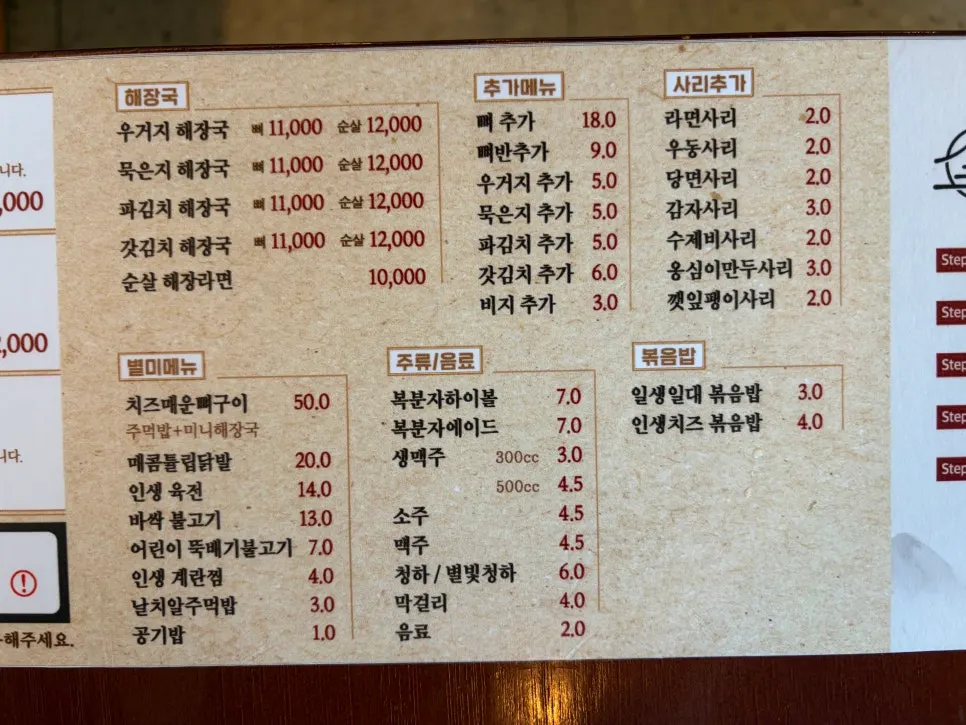 니다.
,000
,000
니다.
해주세요.
해장국
우거지 해장국 뼈 11,000 순살 12,000
묵은지 해장국 뼈 11,000 순살 12,000
파김치 해장국 뼈 11,000 순살 12,000
갓김치 해장국 뼈 11,000 순살 12,000
순살 해장라면 10,000
추가메뉴
뼈 추가 18.0
뼈반추가 9.0
우거지 추가 5.0
묵은지 추가 5.0
파김치 추가 5.0
갓김치 추가 6.0
비지 추가 3.0
사리추가
라면사리 2.0
우동사리 2.0
당면사리 2.0
감자사리 3.0
수제비사리 2.0
옹심이만두사리 3.0
깻잎팽이사리 2.0
별미메뉴
치즈매운뼈구이 50.0
주먹밥+미니해장국
매콤튤립닭발 20.0
인생 육전 14.0
바싹 불고기 13.0
어린이 뚝배기불고기 7.0
인생 계란찜 4.0
날치알주먹밥 3.0
공기밥 1.0
주류/음료
복분자하이볼 7.0
복분자에이드 7.0
생맥주 300cc 3.0
500cc 4.5
소주 4.5
맥주 4.5
청하 / 별빛청하 6.0
막걸리 4.0
음료 2.0
볶음밥
일생일대 볶음밥 3.0
인생치즈 볶음밥 4.0
Step
Step
Step
Step
Step